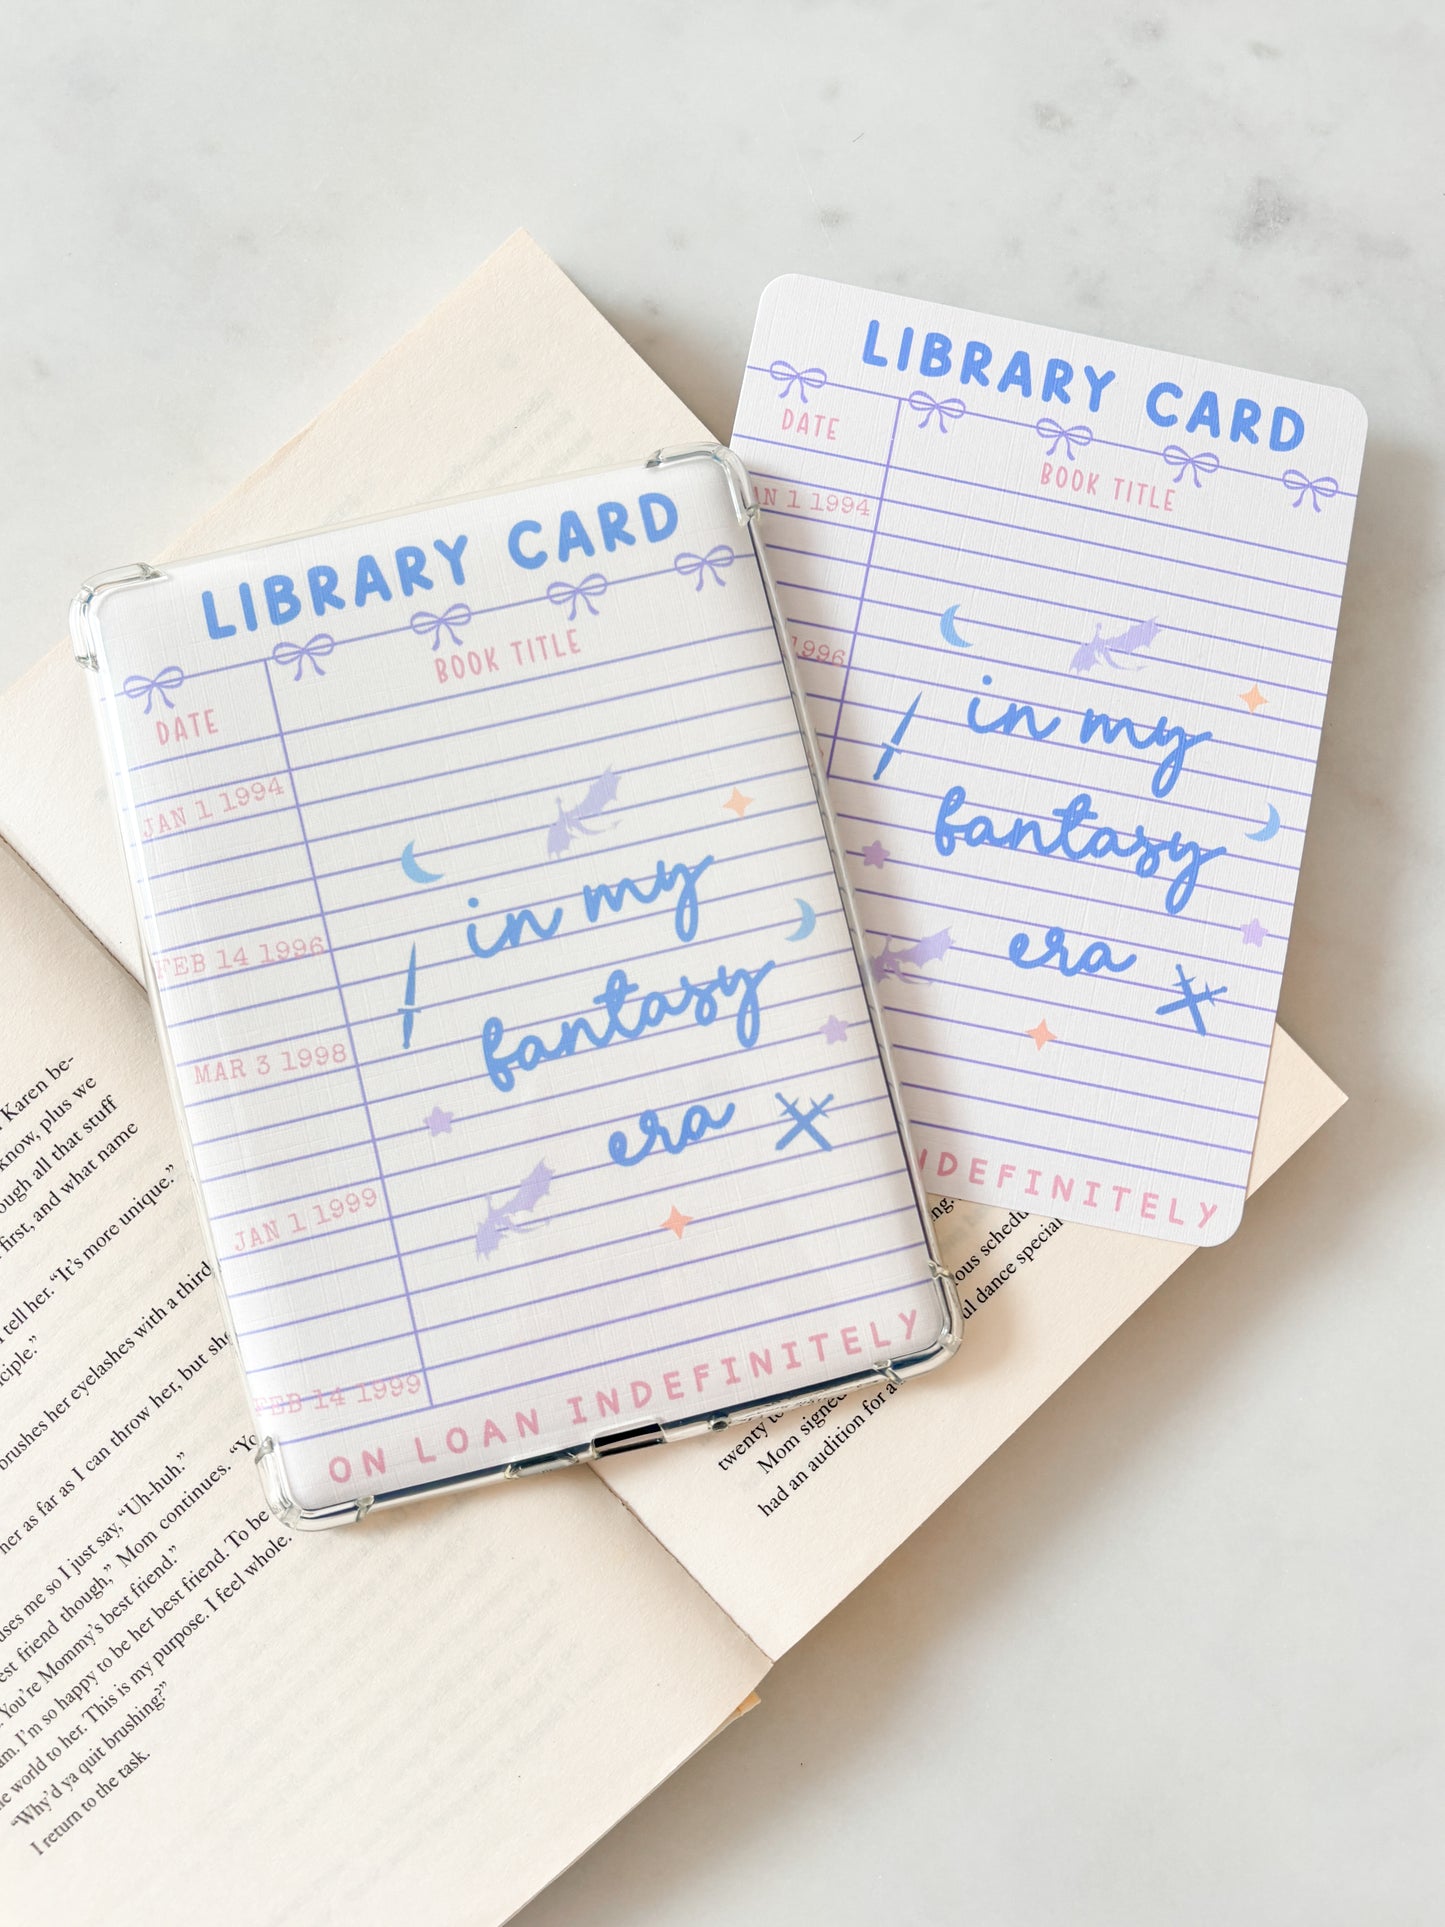 LIBRARY CARD
DATE
BOOK TITLE
JAN 1 1994
FEB 14 1996
MAR 3 1998
JAN 1 1999
FEB 14 1999
in my
fantasy
era
ON LOAN INDEFINITELY
LIBRARY CARD
DATE
BOOK TITLE
1 1994
1996
in my
fantasy
era
INDEFINITELY
Karen be-
know, plus we
all that stuff
first, and what name
"It's more unique."
tell her.
brushes her eyelashes with a third
her as far as I can throw her, but
me so I just say, "Uh-huh."
friend though," Mom continues.
You're Mommy's best friend."
I'm so happy to be her best friend. To be
world to her. This is my purpose. I feel whole.
"Why'd ya quit brushing?"
I return to the task.
dance special
twenty
Mom signed
had an audition for a